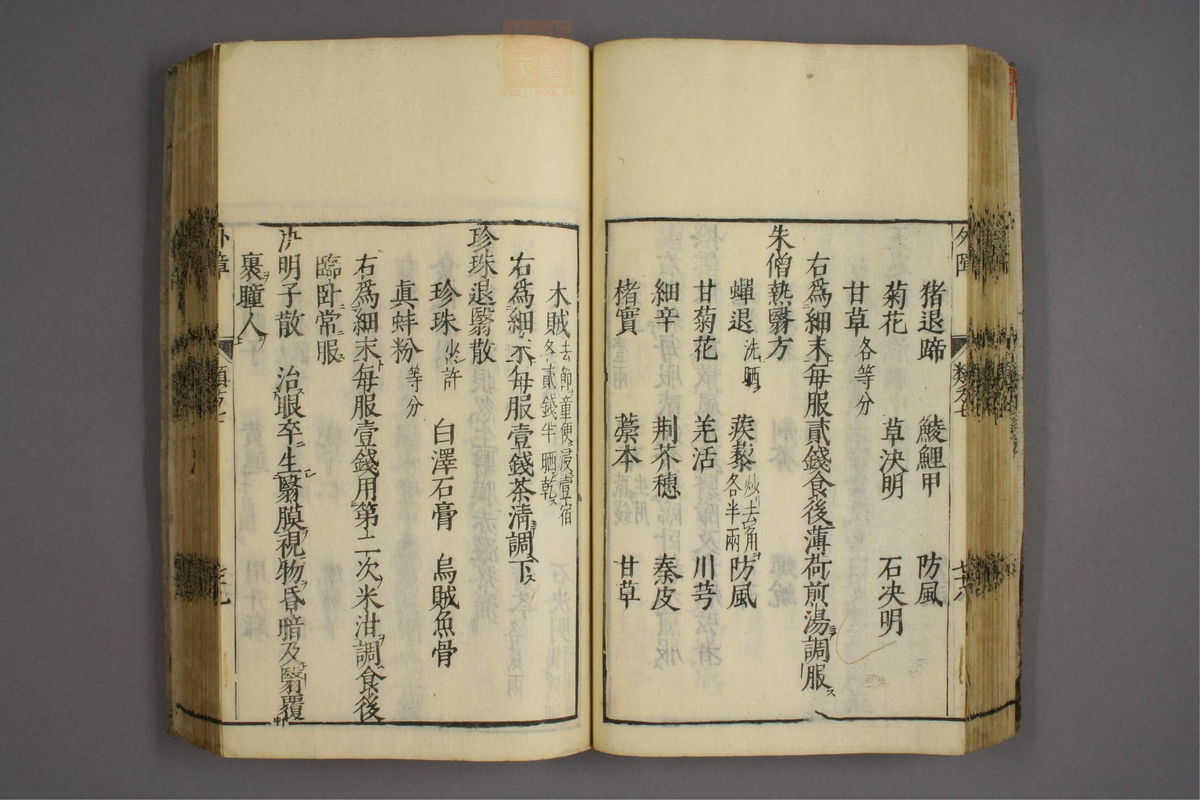 猪退蹄 鯪鯉甲 防風
菊花 草決明 石决明
甘草各等分
右爲細末毎服貳錢食後薄荷煎湯調服
朱僧熱翳方
蟬退洗晒 蒺藜炒去角各半兩 防風
甘菊花 羌活 川芎
細辛 荆芥穗 秦皮
楮實 藁本 甘草
木賊去節童便浸壹宿各貳錢半晒乾
右爲細末毎服壹錢茶清調下
珍珠退翳散
珍珠少許 白澤石膏 烏賊魚骨
眞蚌粉等分
右爲細末毎服壹錢用第二次米泔調食後
臨卧常服
决明子散 治眼卒生翳膜視物昏暗及翳覆
裹瞳人